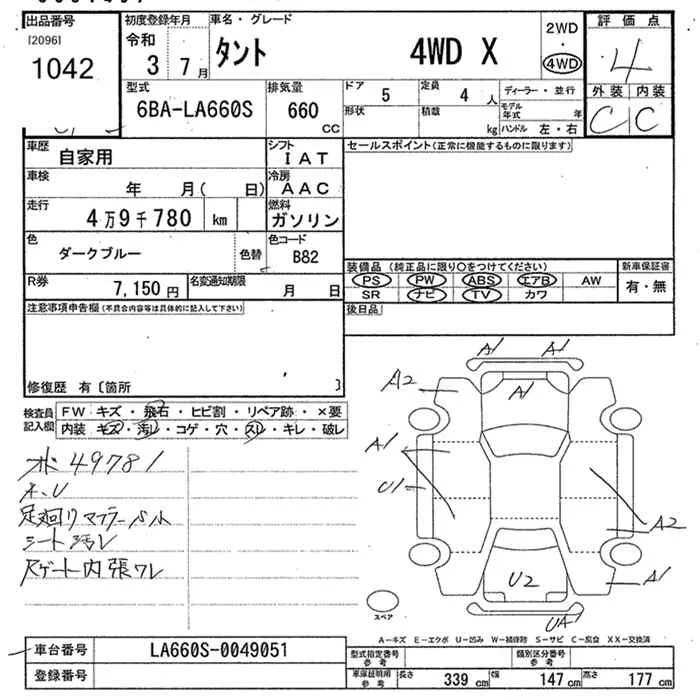 出品番号 初度登録年月 車名・グレード 2WD 評価点
[2096] 令和 ・
1042 3 7月 タント 4WD X 4WD 4
型式 排気量 ドア 5 定員 4 人 ディーラー・並行 外装 内装
6BA-LA660S 660 CC 形状 積載 kg モデル年式 年 C C
ハンドル 左・右
車歴 自家用 シフト IAT セールスポイント(正常に機能するものに限ります)
車検 年 月( 日) 冷房 AAC
走行 4万9千780 km 燃料 ガソリン
色 ダークブルー 色替 色コード B82
装備品 (純正品に限り○をつけてください) 新車保証書
R券 7,150円 名変通知期限 月 日 PS PW ABS エアB AW 有・無
SR ナビ TV カワ
注意事項申告欄(不具合内容等は具体的に記入して下さい) 後日品
修復歴 有〔箇所 〕
検査員記入欄 FW キズ・飛石・ヒビ割・リペア跡・×要
内装 キズ・汚レ・コゲ・穴・スレ・キレ・破レ
49781
足廻りマフラー
シート汚レ
Rゲート内張ワレ
A1 A1
A2 A1
A1
U1
A2
U2 A1
UA1
スペア
A-キズ E-エクボ U-凹み W-補修跡 S-サビ C-腐食 XX-交換済
車台番号 LA660S-0049051 型式指定番号 参考 類別区分番号 参考
登録番号 車庫証明用 参考 長さ 339 cm 幅 147 cm 高さ 177 cm